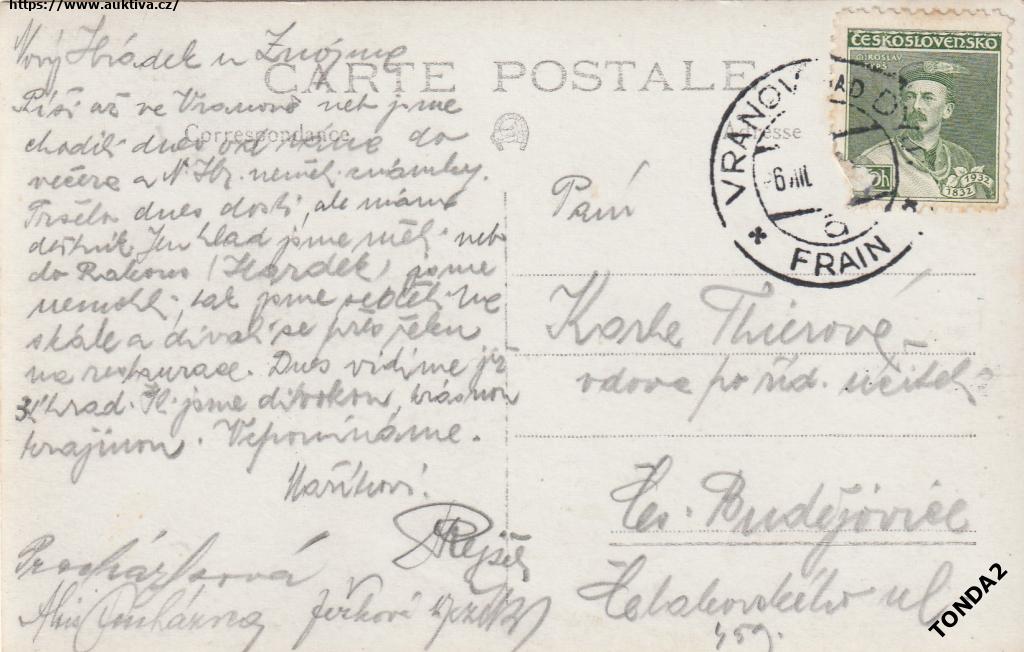 https://www.auktiva.cz/
Nový Hrádek u Znojma
CARTE POSTALE
Correspondance
Adresse
Píši až ve Vranově neb jsme
chodili dnes od rána do
večera a N. Hr. neměl známky.
Pršelo dnes dosti, ale máme
deštník. Jen hlad jsme měli neb
do Rakous (Hardek) jsme
nemohli, tak jsme seděli na
skále a dívali se přes řeku
na restaurace. Dnes vidíme již
3. hrad. Šli jsme divokou, krásnou
krajinou. Vzpomínáme.
Maříkovi.
Rejšek
Procházková
Jirková
ČESKOSLOVENSKO
MIROSLAV
TYRŠ
50h
1832 1932
VRANOV NAD DYJÍ
6.VII.
FRAIN
Paní
Karla Thierová
vdova po říd. učiteli
Čes. Budějovice
ul
459.
TONDA2